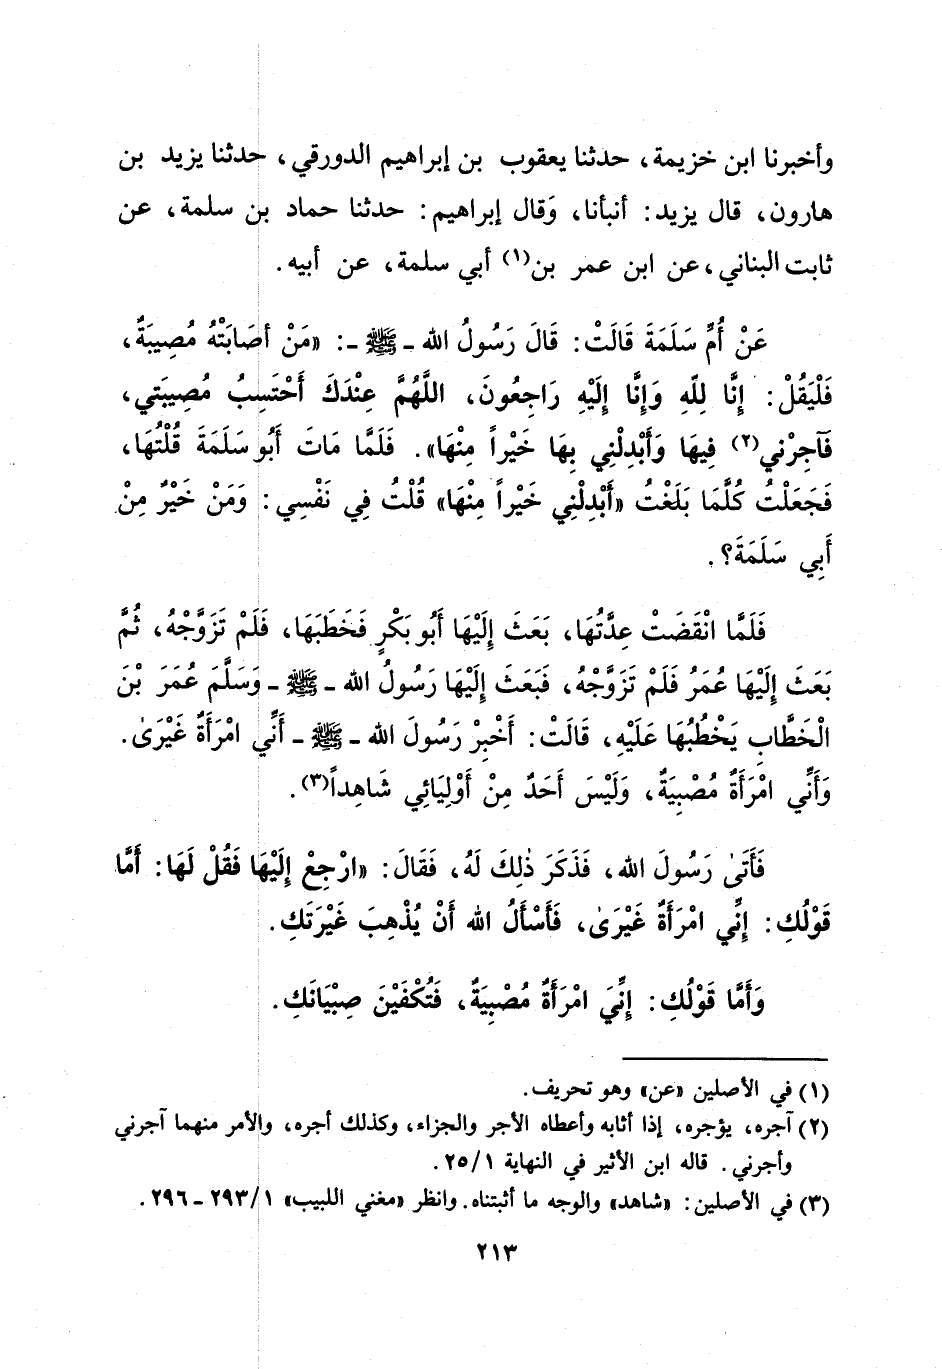 وأخبرنا ابن خزيمة، حدثنا يعقوب بن إبراهيم الدورقي، حدثنا يزيد بن
هارون، قال يزيد: أنبأنا، وَقال إبراهيم: حدثنا حماد بن سلمة، عن
ثابت البناني، عن ابن عمر بن(١) أبي سلمة، عن أبيه.
عَنْ أُمِّ سَلَمَةَ قَالَتْ: قَالَ رَسُولُ الله ـ ﷺ ـ: «مَنْ أصَابَتْهُ مُصِيبَةٌ،
فَلْيَقُلْ: إِنَّا لِلّهِ وَإِنَّا إِلَيْهِ رَاجِعُونَ، اللَّهُمَّ عِنْدَكَ أَحْتَسِبُ مُصِيبَتِي،
فَآجِرْنِي(٢) فِيهَا وَأَبْدِلْنِي بِهَا خَيْراً مِنْهَا». فَلَمَّا مَاتَ أَبُو سَلَمَةَ قُلْتُهَا،
فَجَعَلْتُ كُلَّمَا بَلَغْتُ «أَبْدِلْنِي خَيْراً مِنْهَا» قُلْتُ فِي نَفْسِي: وَمَنْ خَيْرٌ مِنْ
أَبِي سَلَمَةَ؟.
فَلَمَّا انْقَضَتْ عِدَّتُهَا، بَعَثَ إِلَيْهَا أَبُو بَكْرٍ فَخَطَبَهَا، فَلَمْ تَزَوَّجْهُ، ثُمَّ
بَعَثَ إِلَيْهَا عُمَرُ فَلَمْ تَزَوَّجْهُ، فَبَعَثَ إِلَيْهَا رَسُولُ الله ـ ﷺ ـ وَسَلَّمَ عُمَرَ بْنَ
الْخَطَّابِ يَخْطُبُهَا عَلَيْهِ، قَالَتْ: أَخْبِرْ رَسُولَ الله ـ ﷺ ـ أَنِّي امْرَأَةٌ غَيْرَىٰ.
وَأَنِّي امْرَأَةٌ مُصْبِيَةٌ، وَلَيْسَ أَحَدٌ مِنْ أَوْلِيَائِي شَاهِداً(٣).
فَأَتَىٰ رَسُولَ الله، فَذَكَرَ ذٰلِكَ لَهُ، فَقَالَ: «ارْجِعْ إِلَيْهَا فَقُلْ لَهَا: أَمَّا
قَوْلُكِ: إِنِّي امْرَأَةٌ غَيْرَىٰ، فَأَسْأَلُ الله أَنْ يُذْهِبَ غَيْرَتَكِ.
وَأَمَّا قَوْلُكِ: إِنِّيَ امْرَأَةٌ مُصْبِيَةٌ، فَتُكْفَيْنَ صِبْيَانَكِ.
(١) في الأصلين «عن» وهو تحريف.
(٢) آجره، يؤجره، إذا أثابه وأعطاه الأجر والجزاء، وكذلك أجره، والأمر منهما آجرني
وأجرني. قاله ابن الأثير في النهاية ٢٥/١.
(٣) في الأصلين: «شاهد» والوجه ما أثبتناه. وانظر «مغني اللبيب» ٢٩٣/١ ـ ٢٩٦.
٢١٣